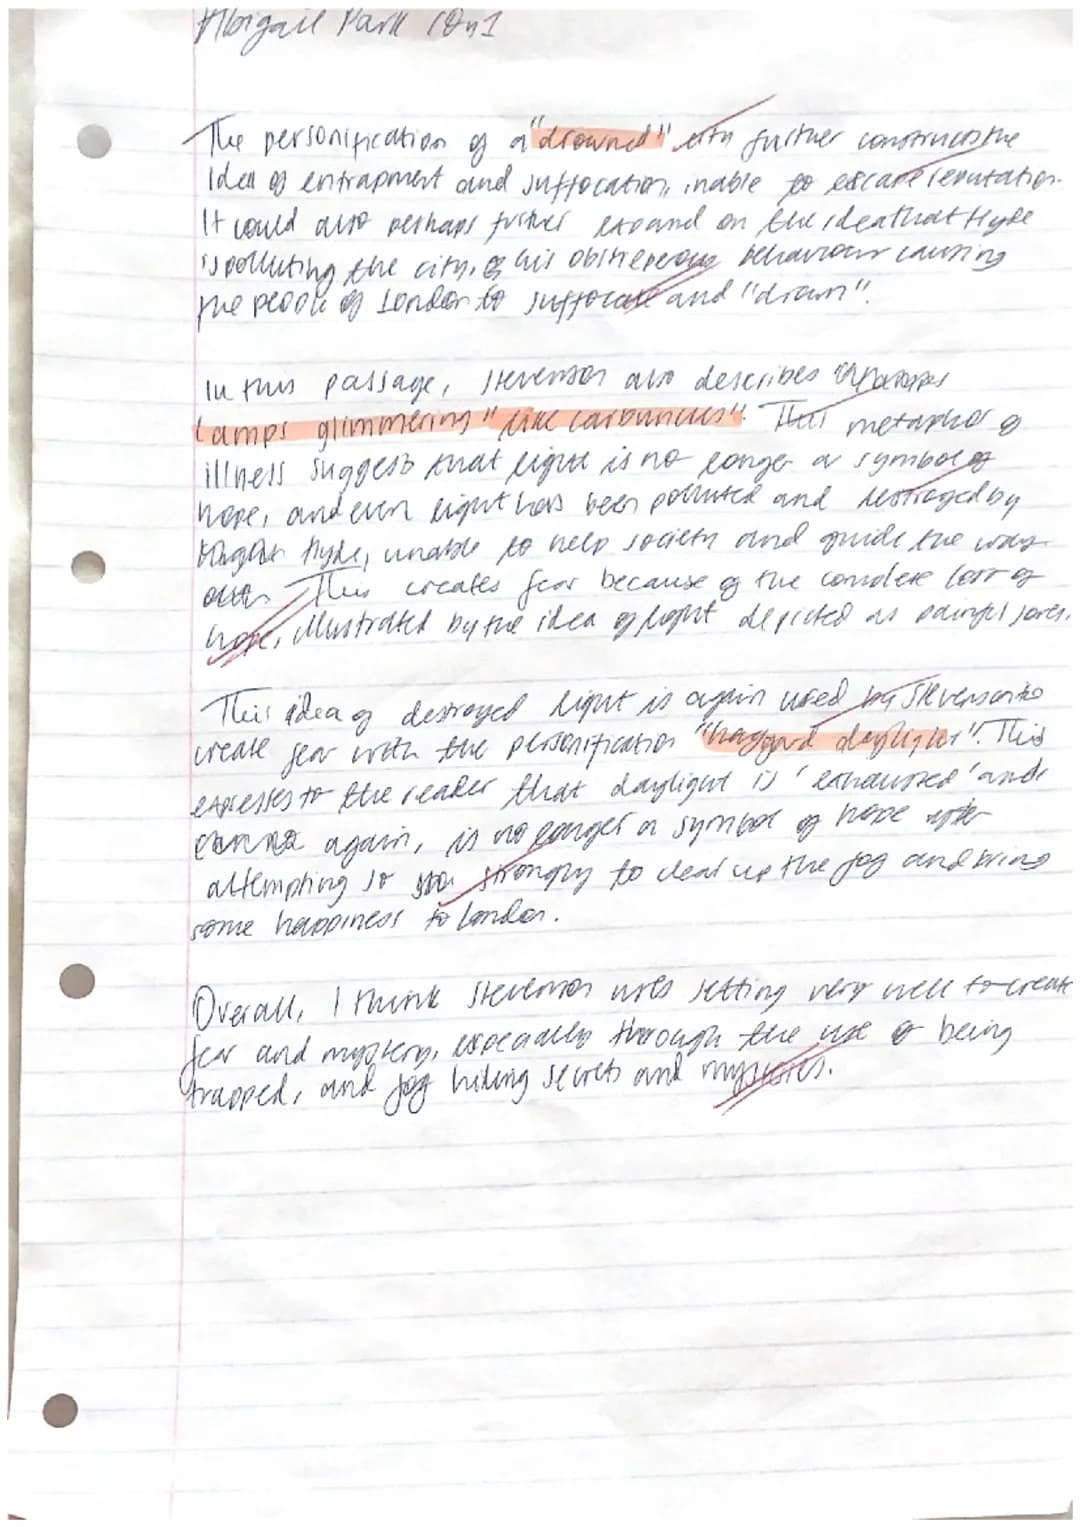 Abigail Park 10y1
The personification of a "drowned" city further constructs the
idea of entrapment and suffocation, inable to escape reputation.
It could also perhaps further expand on the idea that Hyde
is polluting the city, his obstreperous behaviour causing
the people of London to suffocate and "drown".
In this passage, Stevenson also describes
lamps glimmering" like carbuncles". This metaphor of
illness suggests that light is no longer a symbol of
hope, and even light has been polluted and destroyed by
Hyde, unable to help society and guide the way
out. This creates fear because of the complete loss of
hope, illustrated by the idea of light depicted as painful sores.
This idea of destroyed light is again used by Stevenson to
create fear with the personification "haggard daylight". This
expresses to the reader that daylight is 'exhausted' and
again, is no longer a symbol of hope after
attempting so strongly to clear up the fog and bring
some happiness to London.
Overall, I think Stevenson uses setting very well to create
fear and mystery, especially through the use of being
trapped, and fog hiding secrets and mysteries.